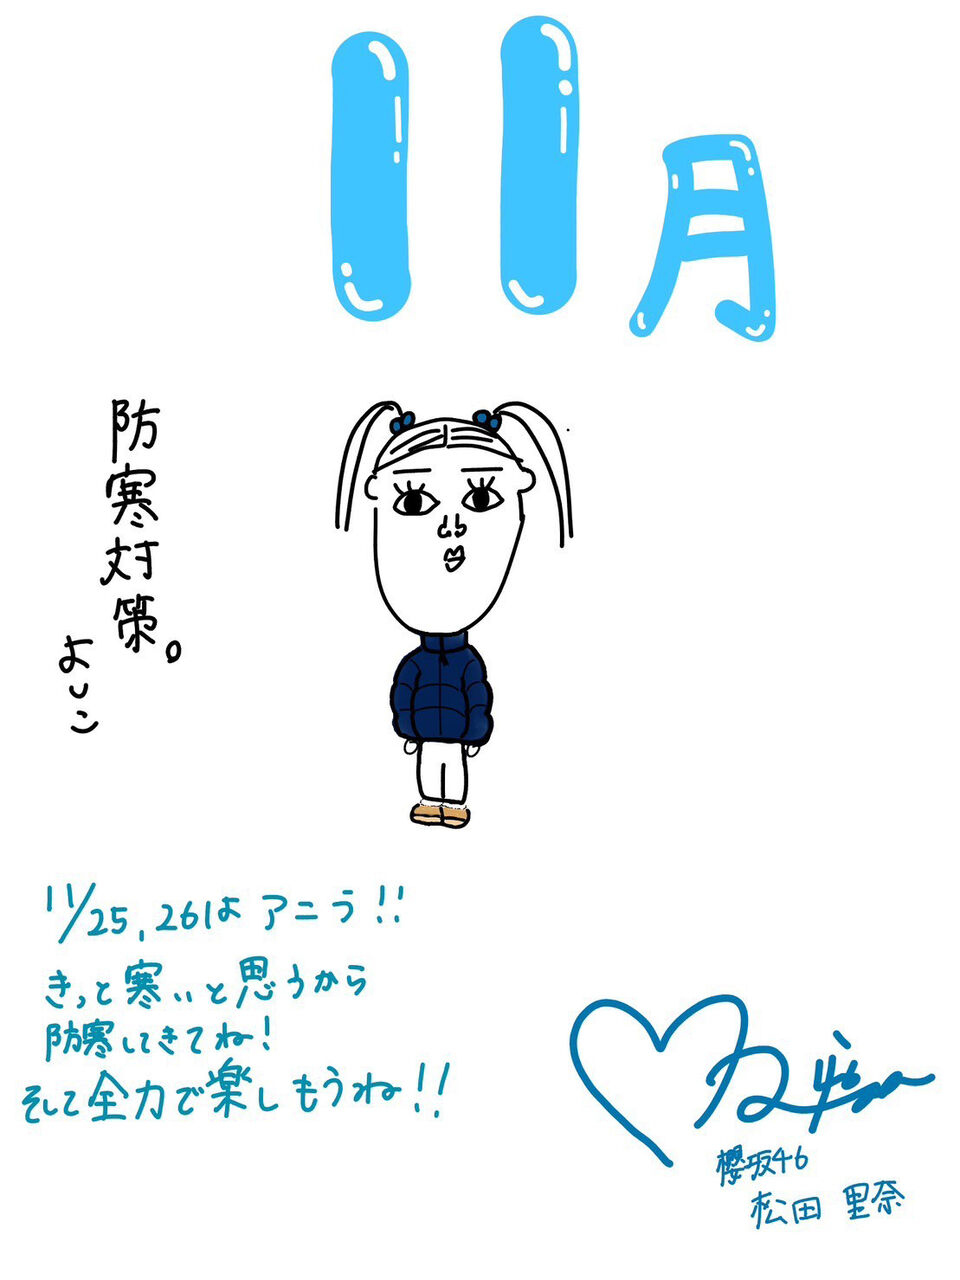 11月
防寒対策。
よしこ
11/25,26は アニラ!!
きっと寒いと思うから
防寒してきてね!
そして全力で楽しもうね!!
櫻坂46
松田 里奈